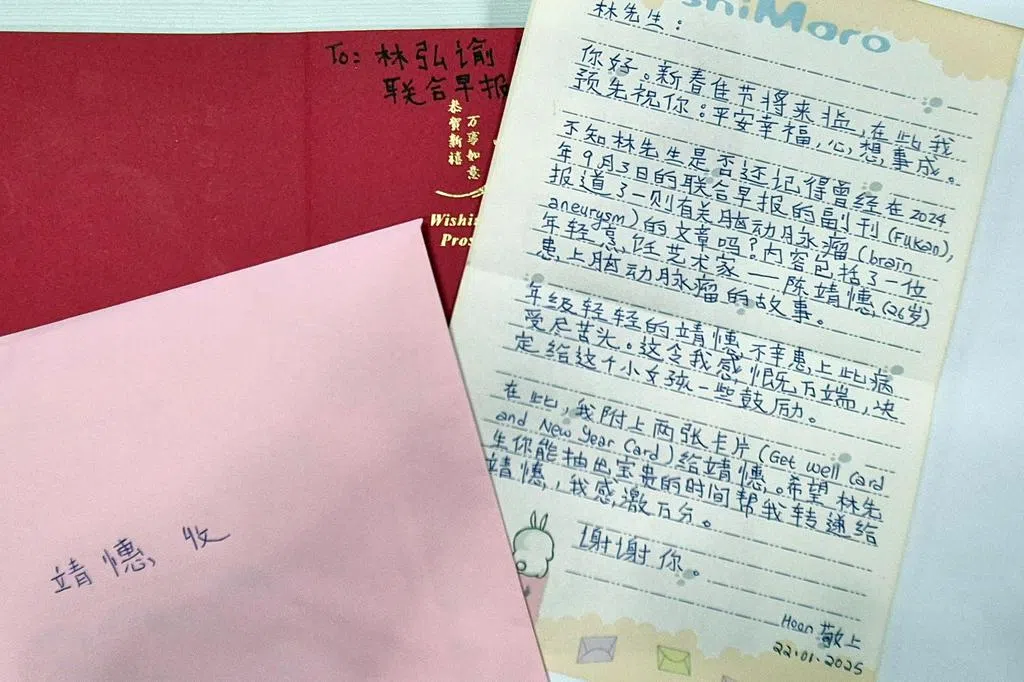 To: 林弘谕
联合早报
恭贺新禧
万事如意
shiMoro
林先生：
你好。新春佳节将来临，在此我
预先祝你：平安幸福，心想事成。
不知林先生是否还记得曾经在2024
年9月3日的联合早报的副刊 (Fukan),
报道了一则有关脑动脉瘤 (brain
aneurysm) 的文章吗？内容包括了一位
年轻艺术家 — 陈靖憓 (26岁)
患上脑动脉瘤的故事。
年级轻轻的靖憓不幸患上此病
受尽苦头。这令我感慨万端，决
定给这个小女孩一些鼓励。
在此，我附上两张卡片 (Get well card
and New Year Card) 给靖憓。希望林先
生你能抽出宝贵的时间帮我转递给
靖憓，我感激万分。
谢谢你。
Hoon 敬上
22.01.2025
靖憓 收